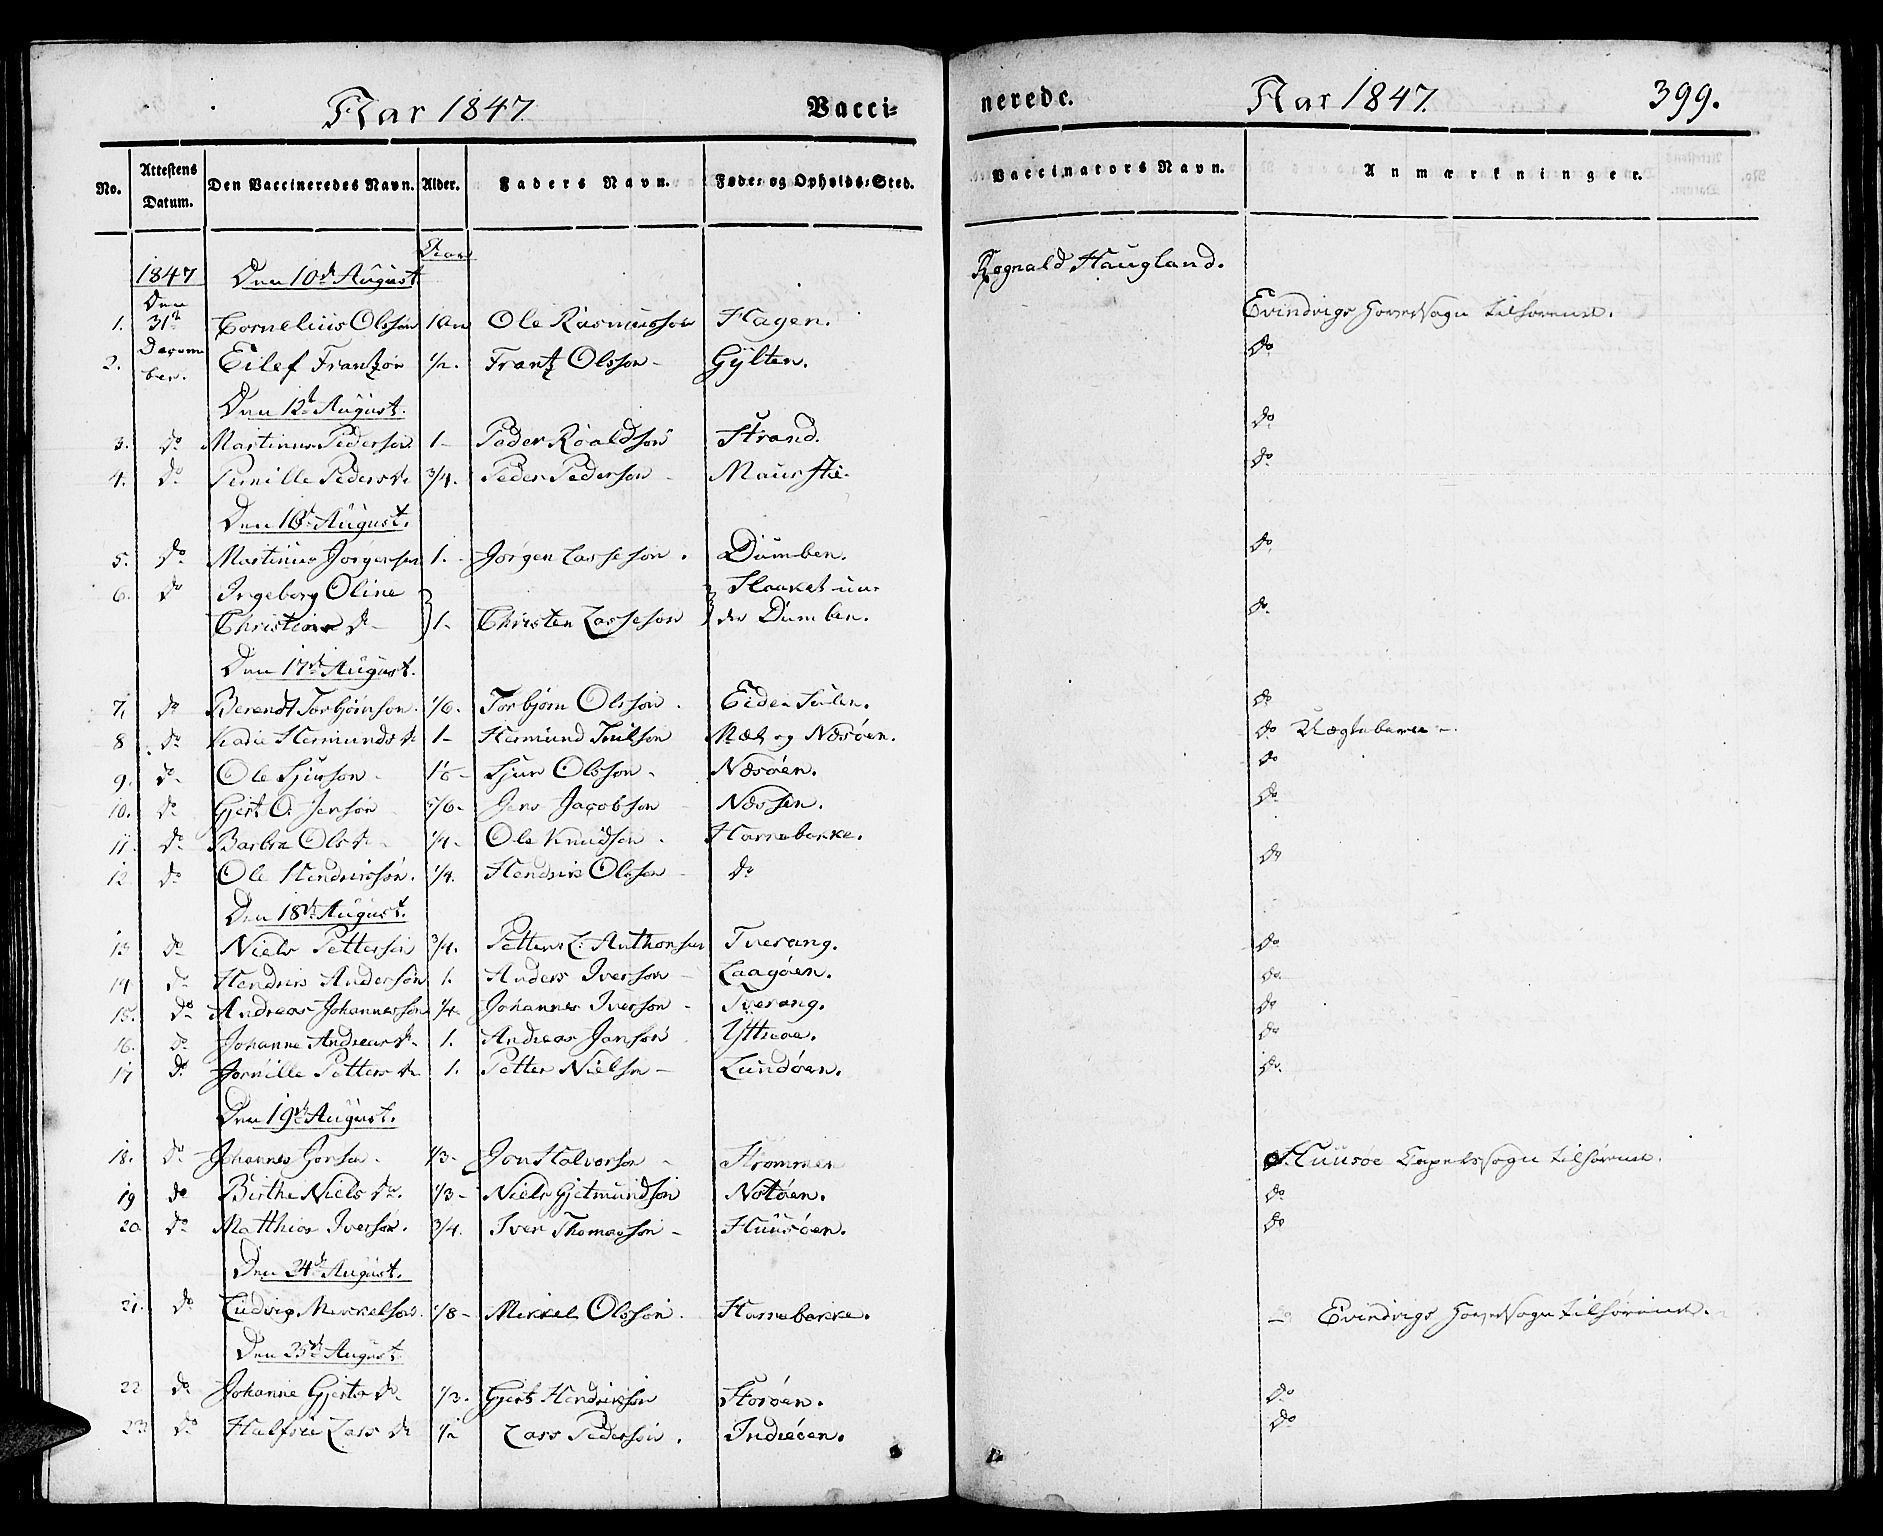 Aar 1847 Vacci-
nerede. Aar 1847. 399.
No. Attestens Datum. Den Vaccineredes Navn. Alder. Faders Navn. Føde- og Opholds-Sted.
Vaccinators Navn. Anmærkninger.
Aar
1847 Den 10de August Rognald Haugland.
Den
1. 31te Cornelius Olssøn 1 Ole Rasmussøn Hagen. Evindvigs Hovedsogn tilhørende.
Decem-
2. ber. Eilef Frantzøn 1/2. Frantz Olssøn - Gylten. do
Den 12te August.
3. do Martinus Pedersøn 1- Peder Roaldsøn Strand. do
4. do Pernille Pedersdr 3/4. Peder Pedersøn - Maurstie. do
Den 16de August.
5. do Martinus Jørgensen 1. - Jørgen Lassesøn. Dumben. do
6. do Ingeborg Oline Slaaket un-
Christine dr 1- Christen Lassesøn der Dumben. do
Den 17de August.
7. do Berendt Torbjørnson. 1/6. Torbjørn Olssøn. Eide Sulen. do
8 do Hermunds dr 1- Hermund Nesøen. do Uægtebarn.
9. do Ole Sjursøn - Sjur Olssøn. Nesøen. do
10. do Gjert O. Jensøn /6- Jens Jacobsøn - Nessen. do
11. do Barbra Olsdr - 1/4- Ole Knudsøn. Hornebakke.
12. do Ole Hendrichsøn. 1/4. Hendrik Olssen - do do
Den 18de August.
13 do Niels Pettersøn 3/4. Petter L: Anthonsen Tverang. do
14 do Hendrik Andersøn 1. Anders Iversøn - Laagøen. do
15. do Andreas Johannessøn 1/4- Johannes Iversøn - Tverang. do
16. do Johanne Andreasdr - 1. Andreas Jansøn Yttreøe. do
17 do Petters dr 1. Petter Nielsøn - Lundøen. do
Den 19de August.
18. do Johannes Jonsøn - 1/3- Jon Halvorsøn - Strømmen Huusøe Capelsogn tilhørende.
19 do Birthe Niels dr. 1/3- Niels Gjetmundsøn Notøen. do
20 do Matthias Iversøn. 3/4. Iver Thomassøn - Huusøen. do
Den 24de August.
21. do Ludvig Mekkelsøn. 1/8- Mekkel Olssøn. Hornebakke. - Evindvigs Hovedsogn tilhørende.
Den 25de August
22 do Johanne Gjerts dr - 1/3. Gjert Hendriksøn Storøen. do
23 do Lars dr 1/2 Lars Pedersøn. Indreøen. do